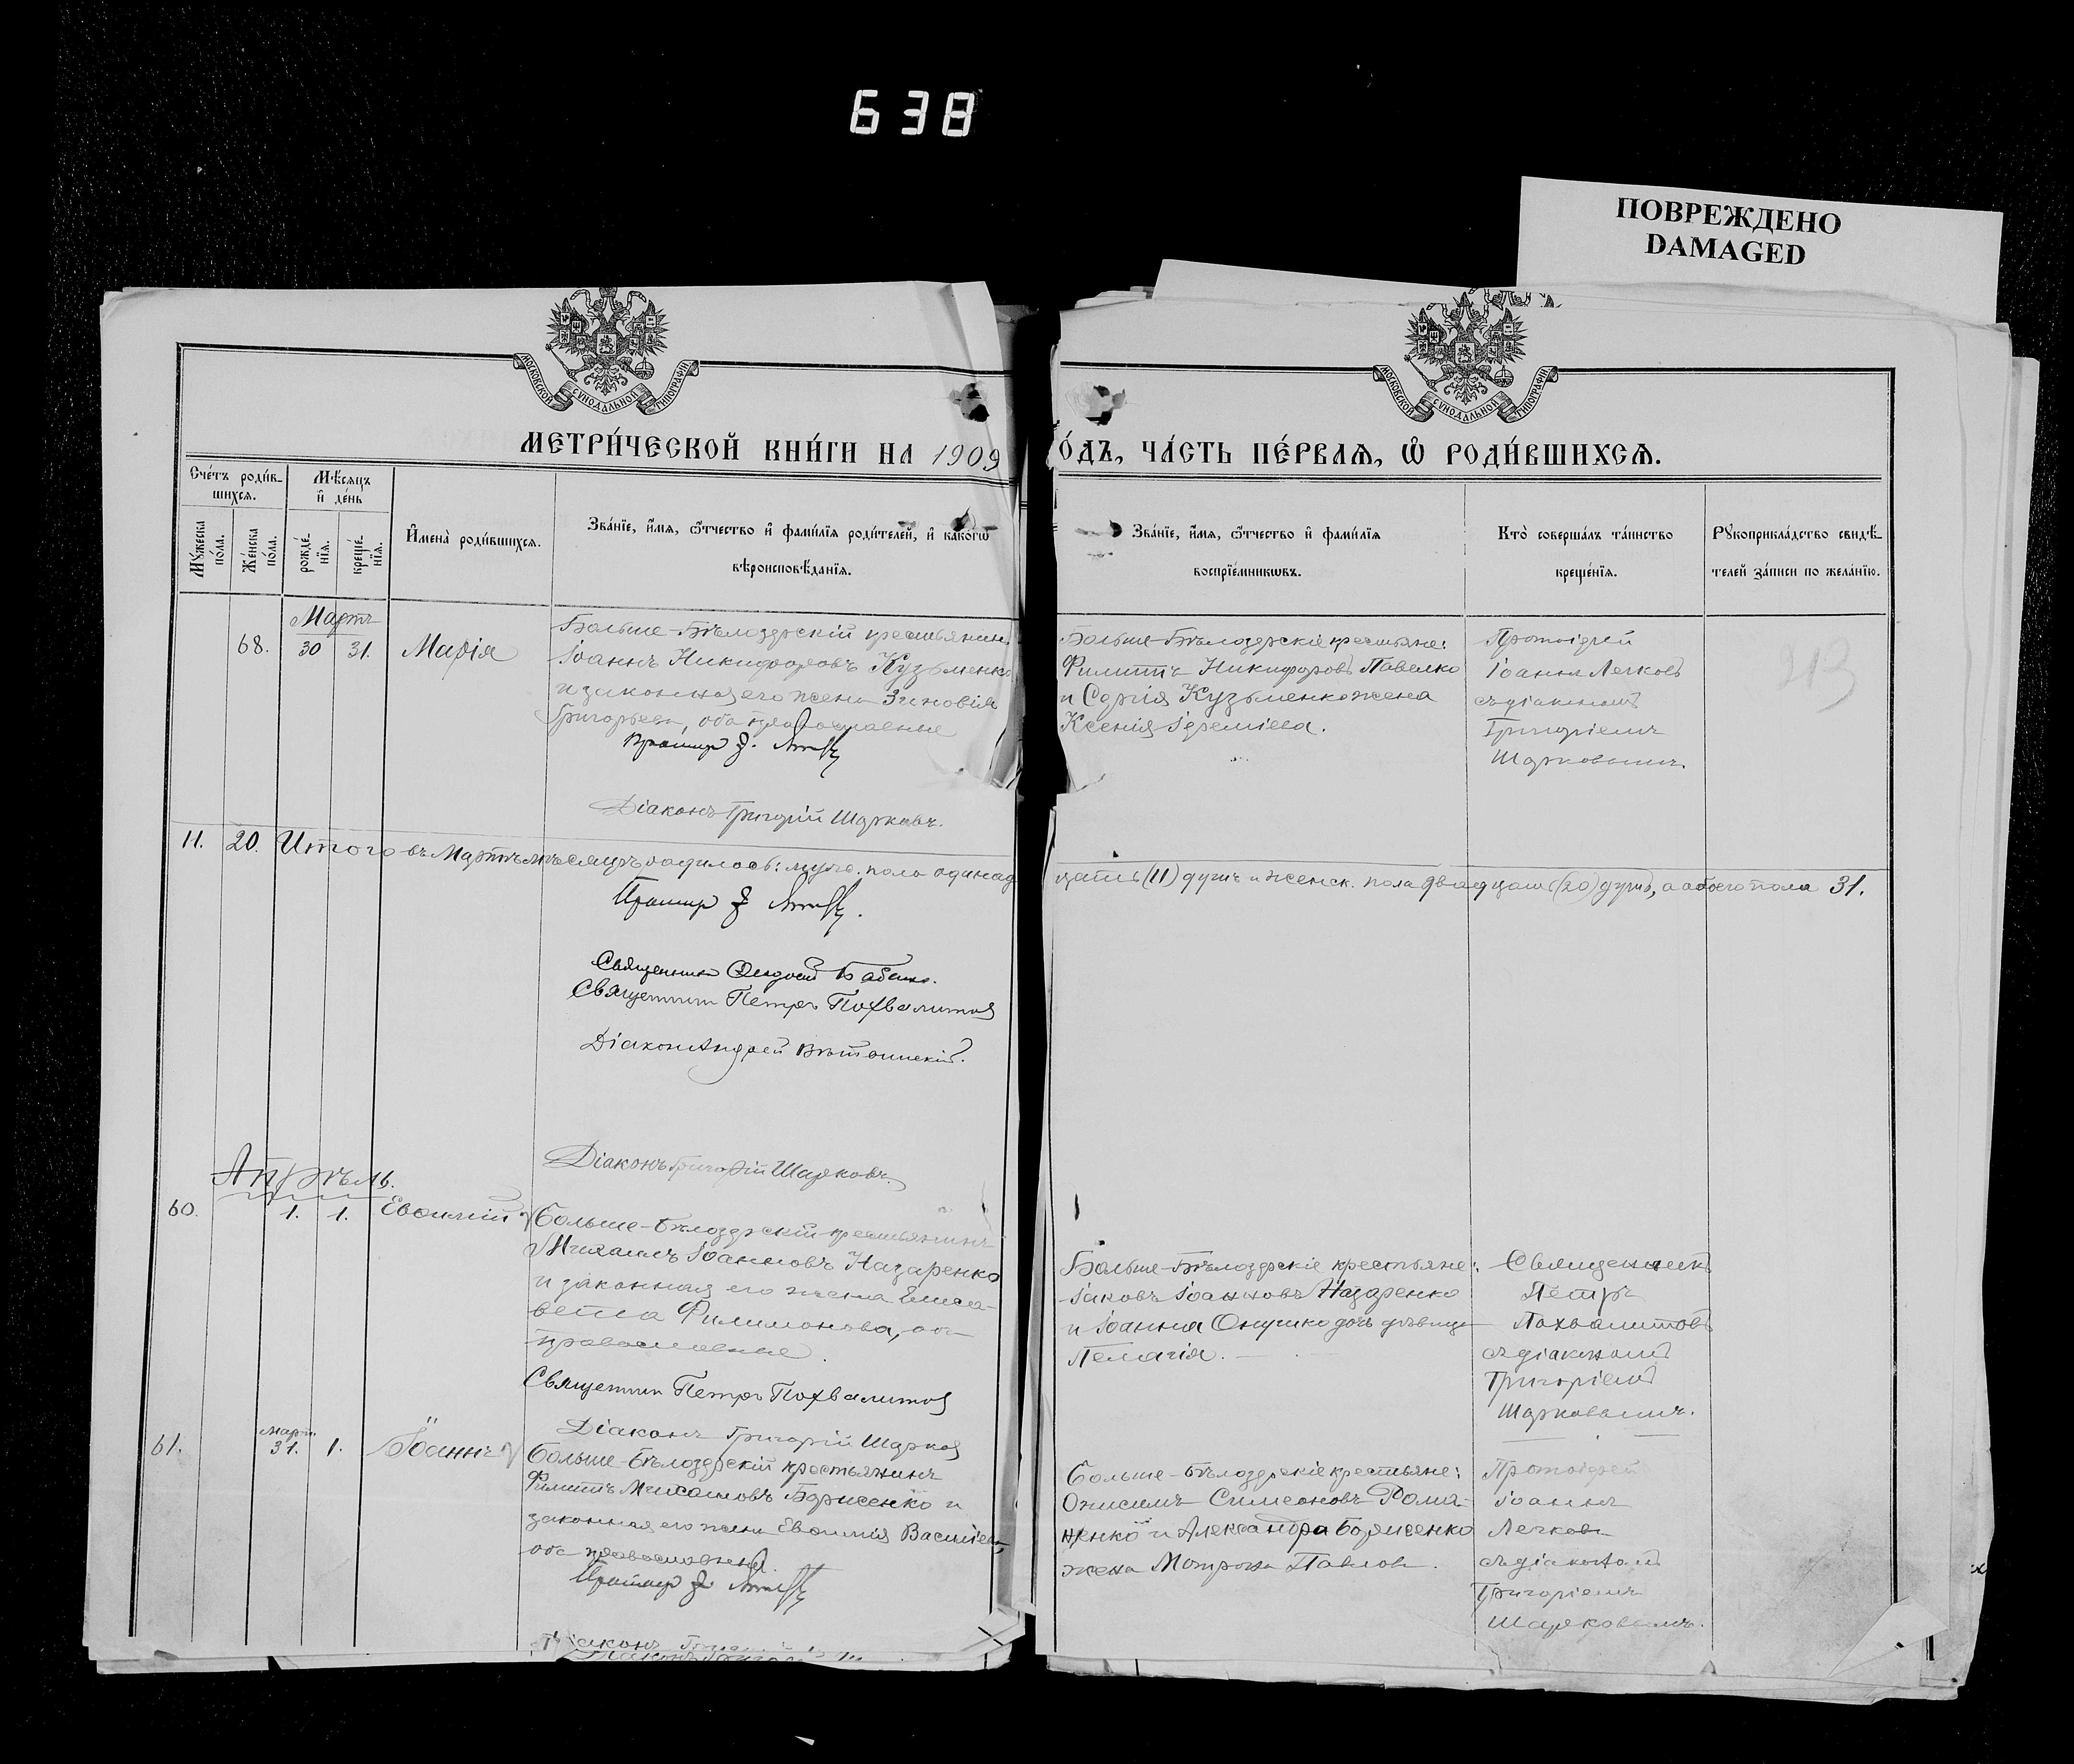 638
ПОВРЕЖДЕНО
DAMAGED
МОСКОВСКОЙ СѴНОДАЛЬНОЙ ТИПОГРАФІИ
МОСКОВСКОЙ СѴНОДАЛЬНОЙ ТИПОГРАФІИ
МЕТРИ́ЧЕСКОЙ КНИ́ГИ НА 1909
О́ДЪ, ЧА́СТЬ ПЕ́РВАѦ, Ѡ҆ РОДИ́ВШИХСѦ.
Сче́тъ роди́в-
шихсѧ.
Мꙋ́жеска по́ла.
Же́нска по́ла.
Мѣ́сѧцъ
и҆ де́нь
рожде́-
нїѧ.
креще́-
нїѧ.
И҆мена̀ роди́вшихсѧ.
Зва́нїе, и҆́мѧ, ѻ҆́тчество и҆ фами́лїѧ роди́телей, и҆ како́гѡ
вѣроисповѣ́данїѧ.
Зва́нїе, и҆́мѧ, ѻ҆́тчество и҆ фами́лїѧ
воспрїе́мникѡвъ.
Кто̀ соверша́лъ та́инство
креще́нїѧ.
Рꙋкоприкла́дство свидѣ́-
телей за́писи по жела́нїю.
Мартъ
68.
30
31.
Марія
Больше-Бѣлозерскій крестьянин
Іоаннъ Никифоровъ Кузьменко
и законная его жена Зиновія
Григорьева, оба православные
Діаконъ Григорій Шарковъ.
Больше-Бѣлозерскіе крестьяне:
Филиппъ Никифоровъ Павелко
и Сергія Кузьменко жена
Ксенія Іереміева.
Протоіерей
Іоаннъ Лечковъ
съ діакономъ
Григоріемъ
Шарковымъ.
213
11.
20.
Итого въ Мартѣ мѣсяцѣ родилось: муж. пола одинад
цать (11) душъ и женск. пола двадцать (20) душъ, а обоего пола 31.
Священникъ Бабенко.
Священник Петръ Похвалитов
Діакон Андрей
Діаконъ Григорій Шарковъ.
Апрѣль.
60.
1.
1.
Евѳимій
Больше-Бѣлозерскій крестьянинъ
Михаилъ Іоанновъ Назаренко
и законная его жена Елиса-
вета Филимонова, оба
православные.
Священник Петръ Похвалитов
Діаконъ Григорій Шарков
Больше-Бѣлозерскіе крестьяне:
Іаковъ Іоанновъ Назаренко
и Іоанна Онушко дочь дѣвица
Пелагія.
Священникъ
Петръ
Похвалитовъ
съ діакономъ
Григоріемъ
Шарковымъ.
61.
Март.
31.
1.
Іоаннъ
Больше-Бѣлозерскій крестьянинъ
Филиппъ Михаиловъ Борисенко и
законная его жена Евѳимія Васильева,
оба православные.
Больше-Бѣлозерскіе крестьяне:
Онисимъ Симеоновъ Рома-
ненко и Александра Борисенко
жена Мотрона Павлова.
Протоіерей
Іоаннъ
Лечковъ
съ діакономъ
Григоріемъ
Шарковымъ.